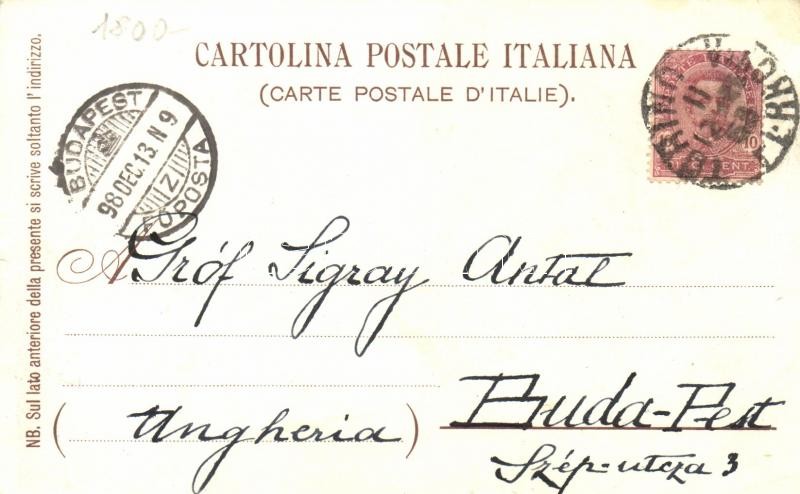 1800-
CARTOLINA POSTALE ITALIANA
(CARTE POSTALE D'ITALIE).
BUDAPEST
98 DEC. 13. N 9
FŐPOSTA
TORINO
10
CENT.
A Gróf Sigray Antal
Buda-Pest
(Ungheria)
Szép-utcza 3
NB. Sul lato anteriore della presente si scrive soltanto l'indirizzo.